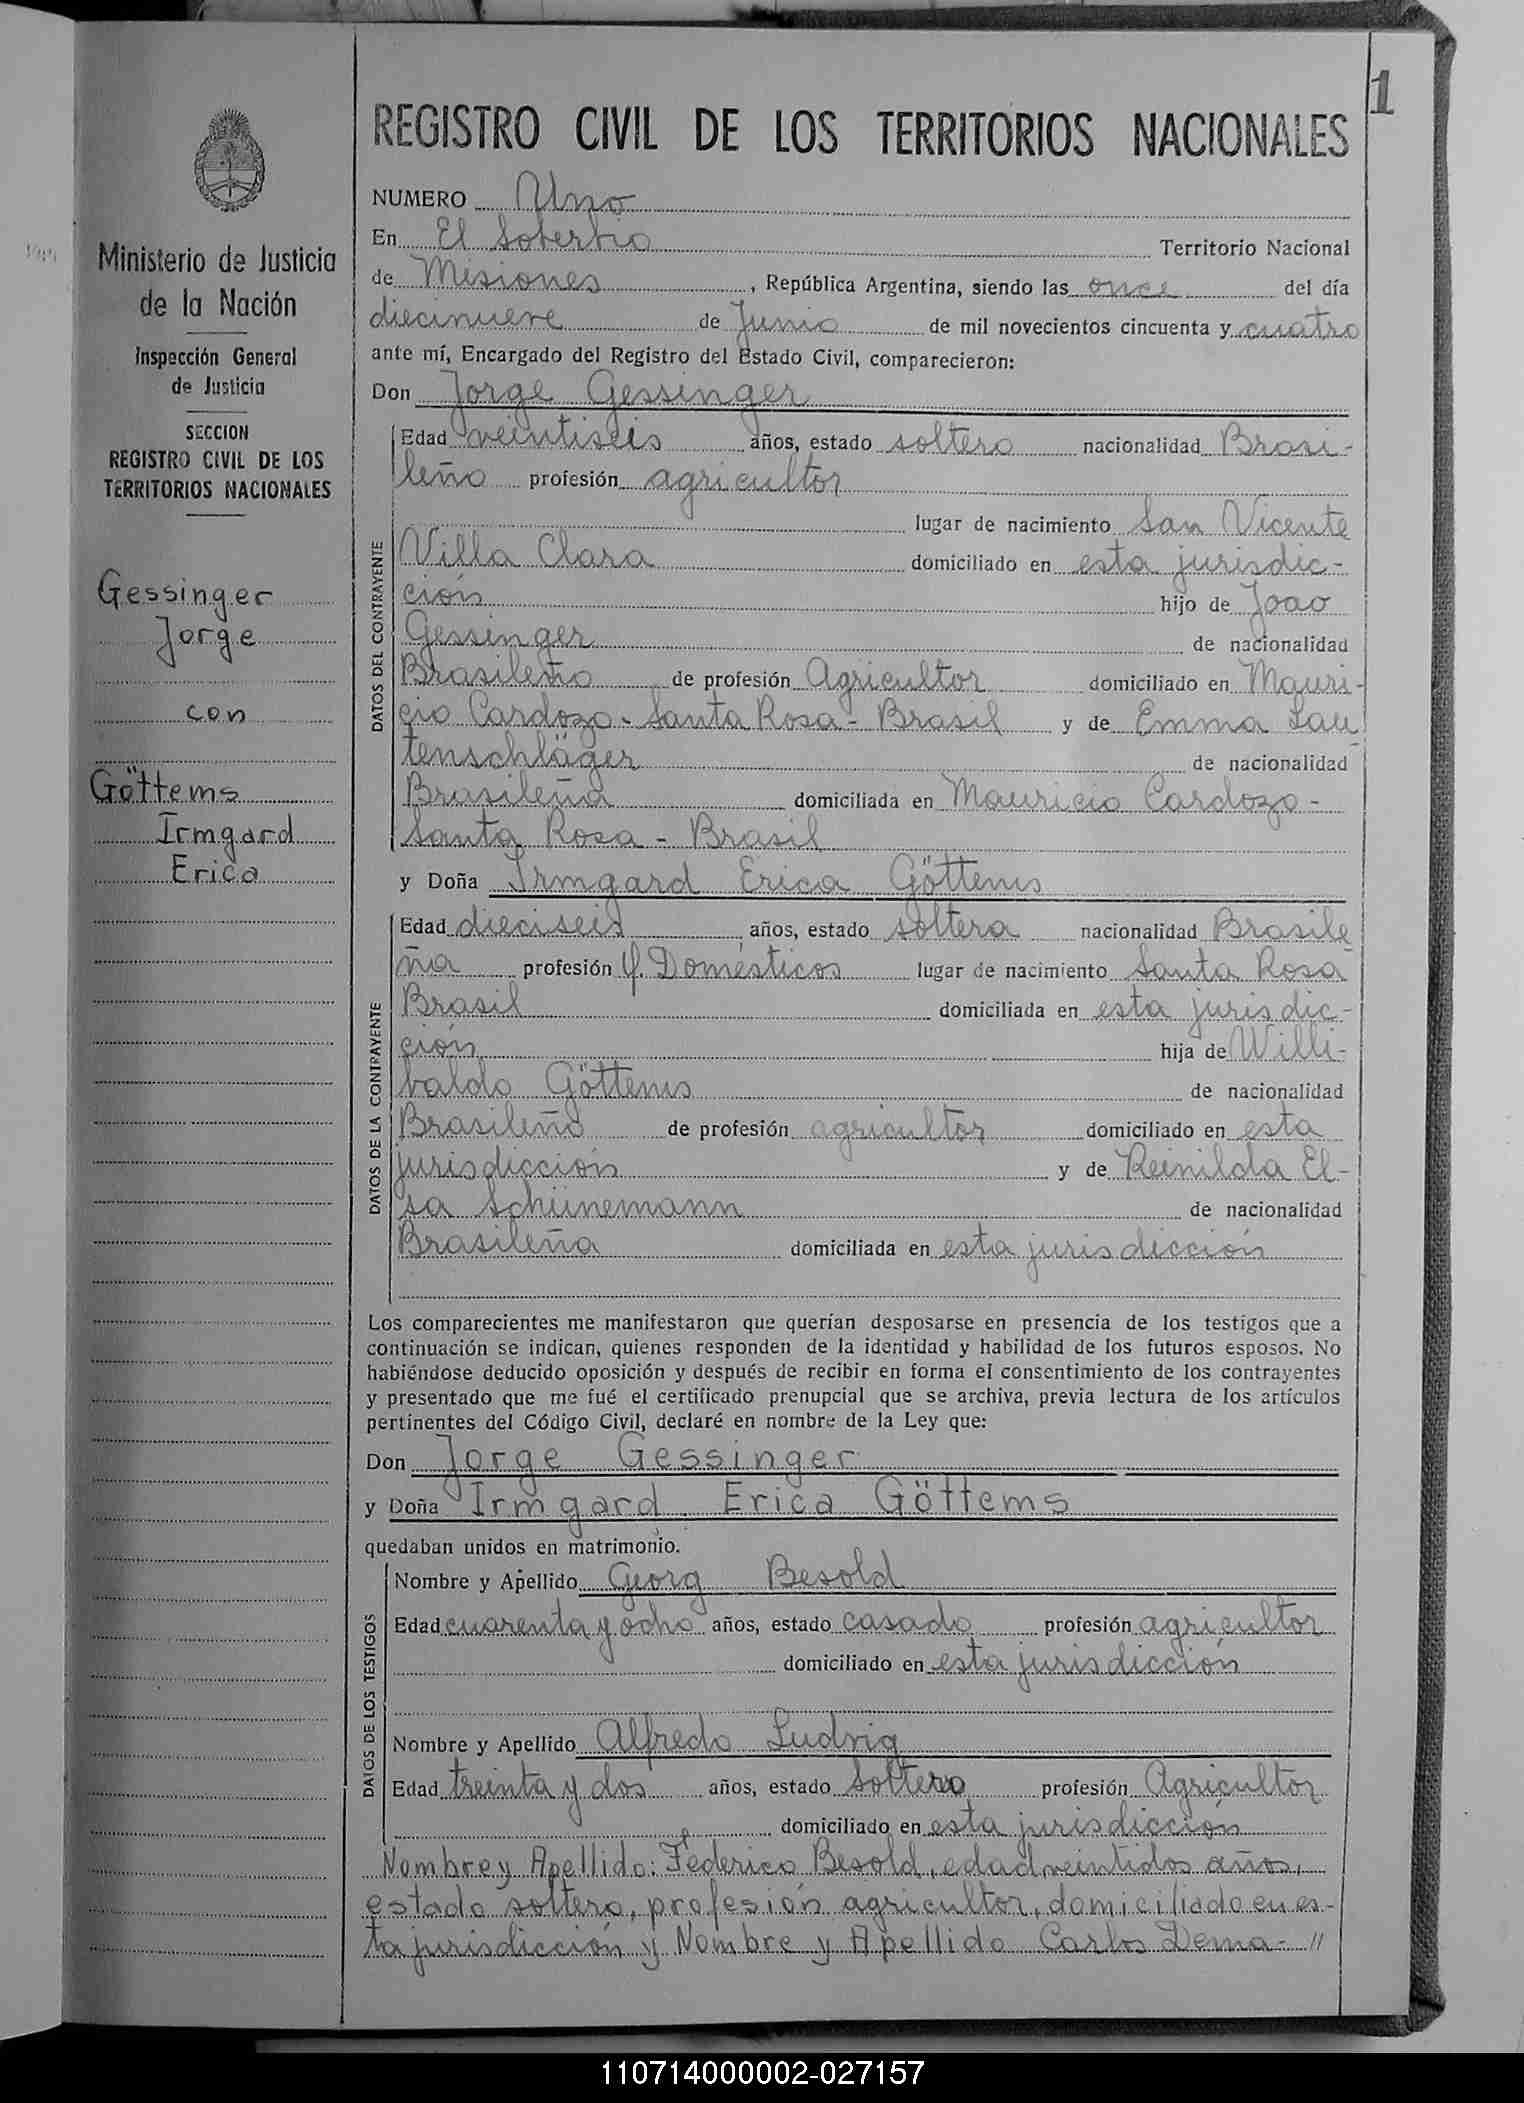 1
Ministerio de Justicia
de la Nación
Inspección General
de Justicia
SECCION
REGISTRO CIVIL DE LOS
TERRITORIOS NACIONALES
Gessinger
Jorge
con
Göttems
Irmgard
Erica
REGISTRO CIVIL DE LOS TERRITORIOS NACIONALES
NUMERO Uno
En El Soberbio Territorio Nacional
de Misiones, República Argentina, siendo las once del día
diecinueve de Junio de mil novecientos cincuenta y cuatro
ante mí, Encargado del Registro del Estado Civil, comparecieron:
Don Jorge Gessinger
DATOS DEL CONTRAYENTE
Edad veintiseis años, estado soltero nacionalidad Brasi-
leño profesión agricultor
lugar de nacimiento San Vicente
Villa Clara domiciliado en esta jurisdic-
ción hijo de Joao
Gessinger de nacionalidad
Brasileño de profesión Agricultor domiciliado en Mauri-
cio Cardozo - Santa Rosa - Brasil y de Emma Lau
tenschläger de nacionalidad
Brasileña domiciliada en Mauricio Cardozo -
Santa Rosa - Brasil
y Doña Irmgard Erica Göttems
DATOS DE LA CONTRAYENTE
Edad dieciseis años, estado soltera nacionalidad Brasile
ña profesión Q. Domésticos lugar de nacimiento Santa Rosa
Brasil domiciliada en esta jurisdic-
ción hija de Willi-
baldo Göttems de nacionalidad
Brasileño de profesión agricultor domiciliado en esta
jurisdicción y de Reinilda El-
sa Schünemann de nacionalidad
Brasileña domiciliada en esta jurisdicción
Los comparecientes me manifestaron que querían desposarse en presencia de los testigos que a
continuación se indican, quienes responden de la identidad y habilidad de los futuros esposos. No
habiéndose deducido oposición y después de recibir en forma el consentimiento de los contrayentes
y presentado que me fué el certificado prenupcial que se archiva, previa lectura de los artículos
pertinentes del Código Civil, declaré en nombre de la Ley que:
Don Jorge Gessinger
y Doña Irmgard Erica Göttems
quedaban unidos en matrimonio.
DATOS DE LOS TESTIGOS
Nombre y Apellido Georg Besold
Edad cuarenta y ocho años, estado casado profesión agricultor
domiciliado en esta jurisdicción
Nombre y Apellido Alfredo Ludvig
Edad treinta y dos años, estado Soltero profesión Agricultor
domiciliado en esta jurisdicción
Nombre y Apellido: Federico Besold, edad veintidos años,
estado soltero, profesión agricultor, domiciliado en es-
ta jurisdicción y Nombre y Apellido Carlos Dema- //
110714000002-027157